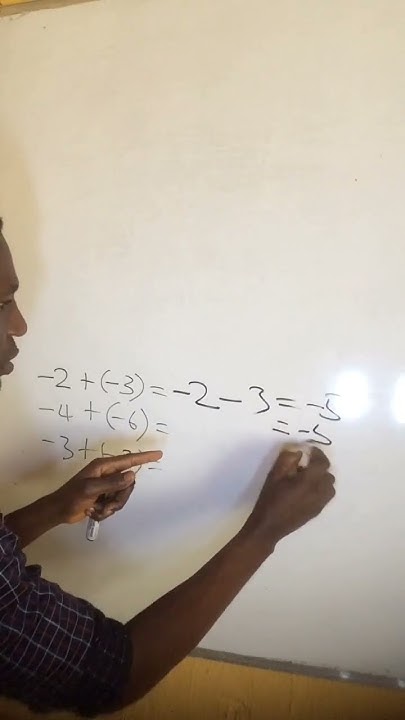 -2 + (-3) = -2 - 3 = -5
= -5
-4 + (-6) =
-3 +